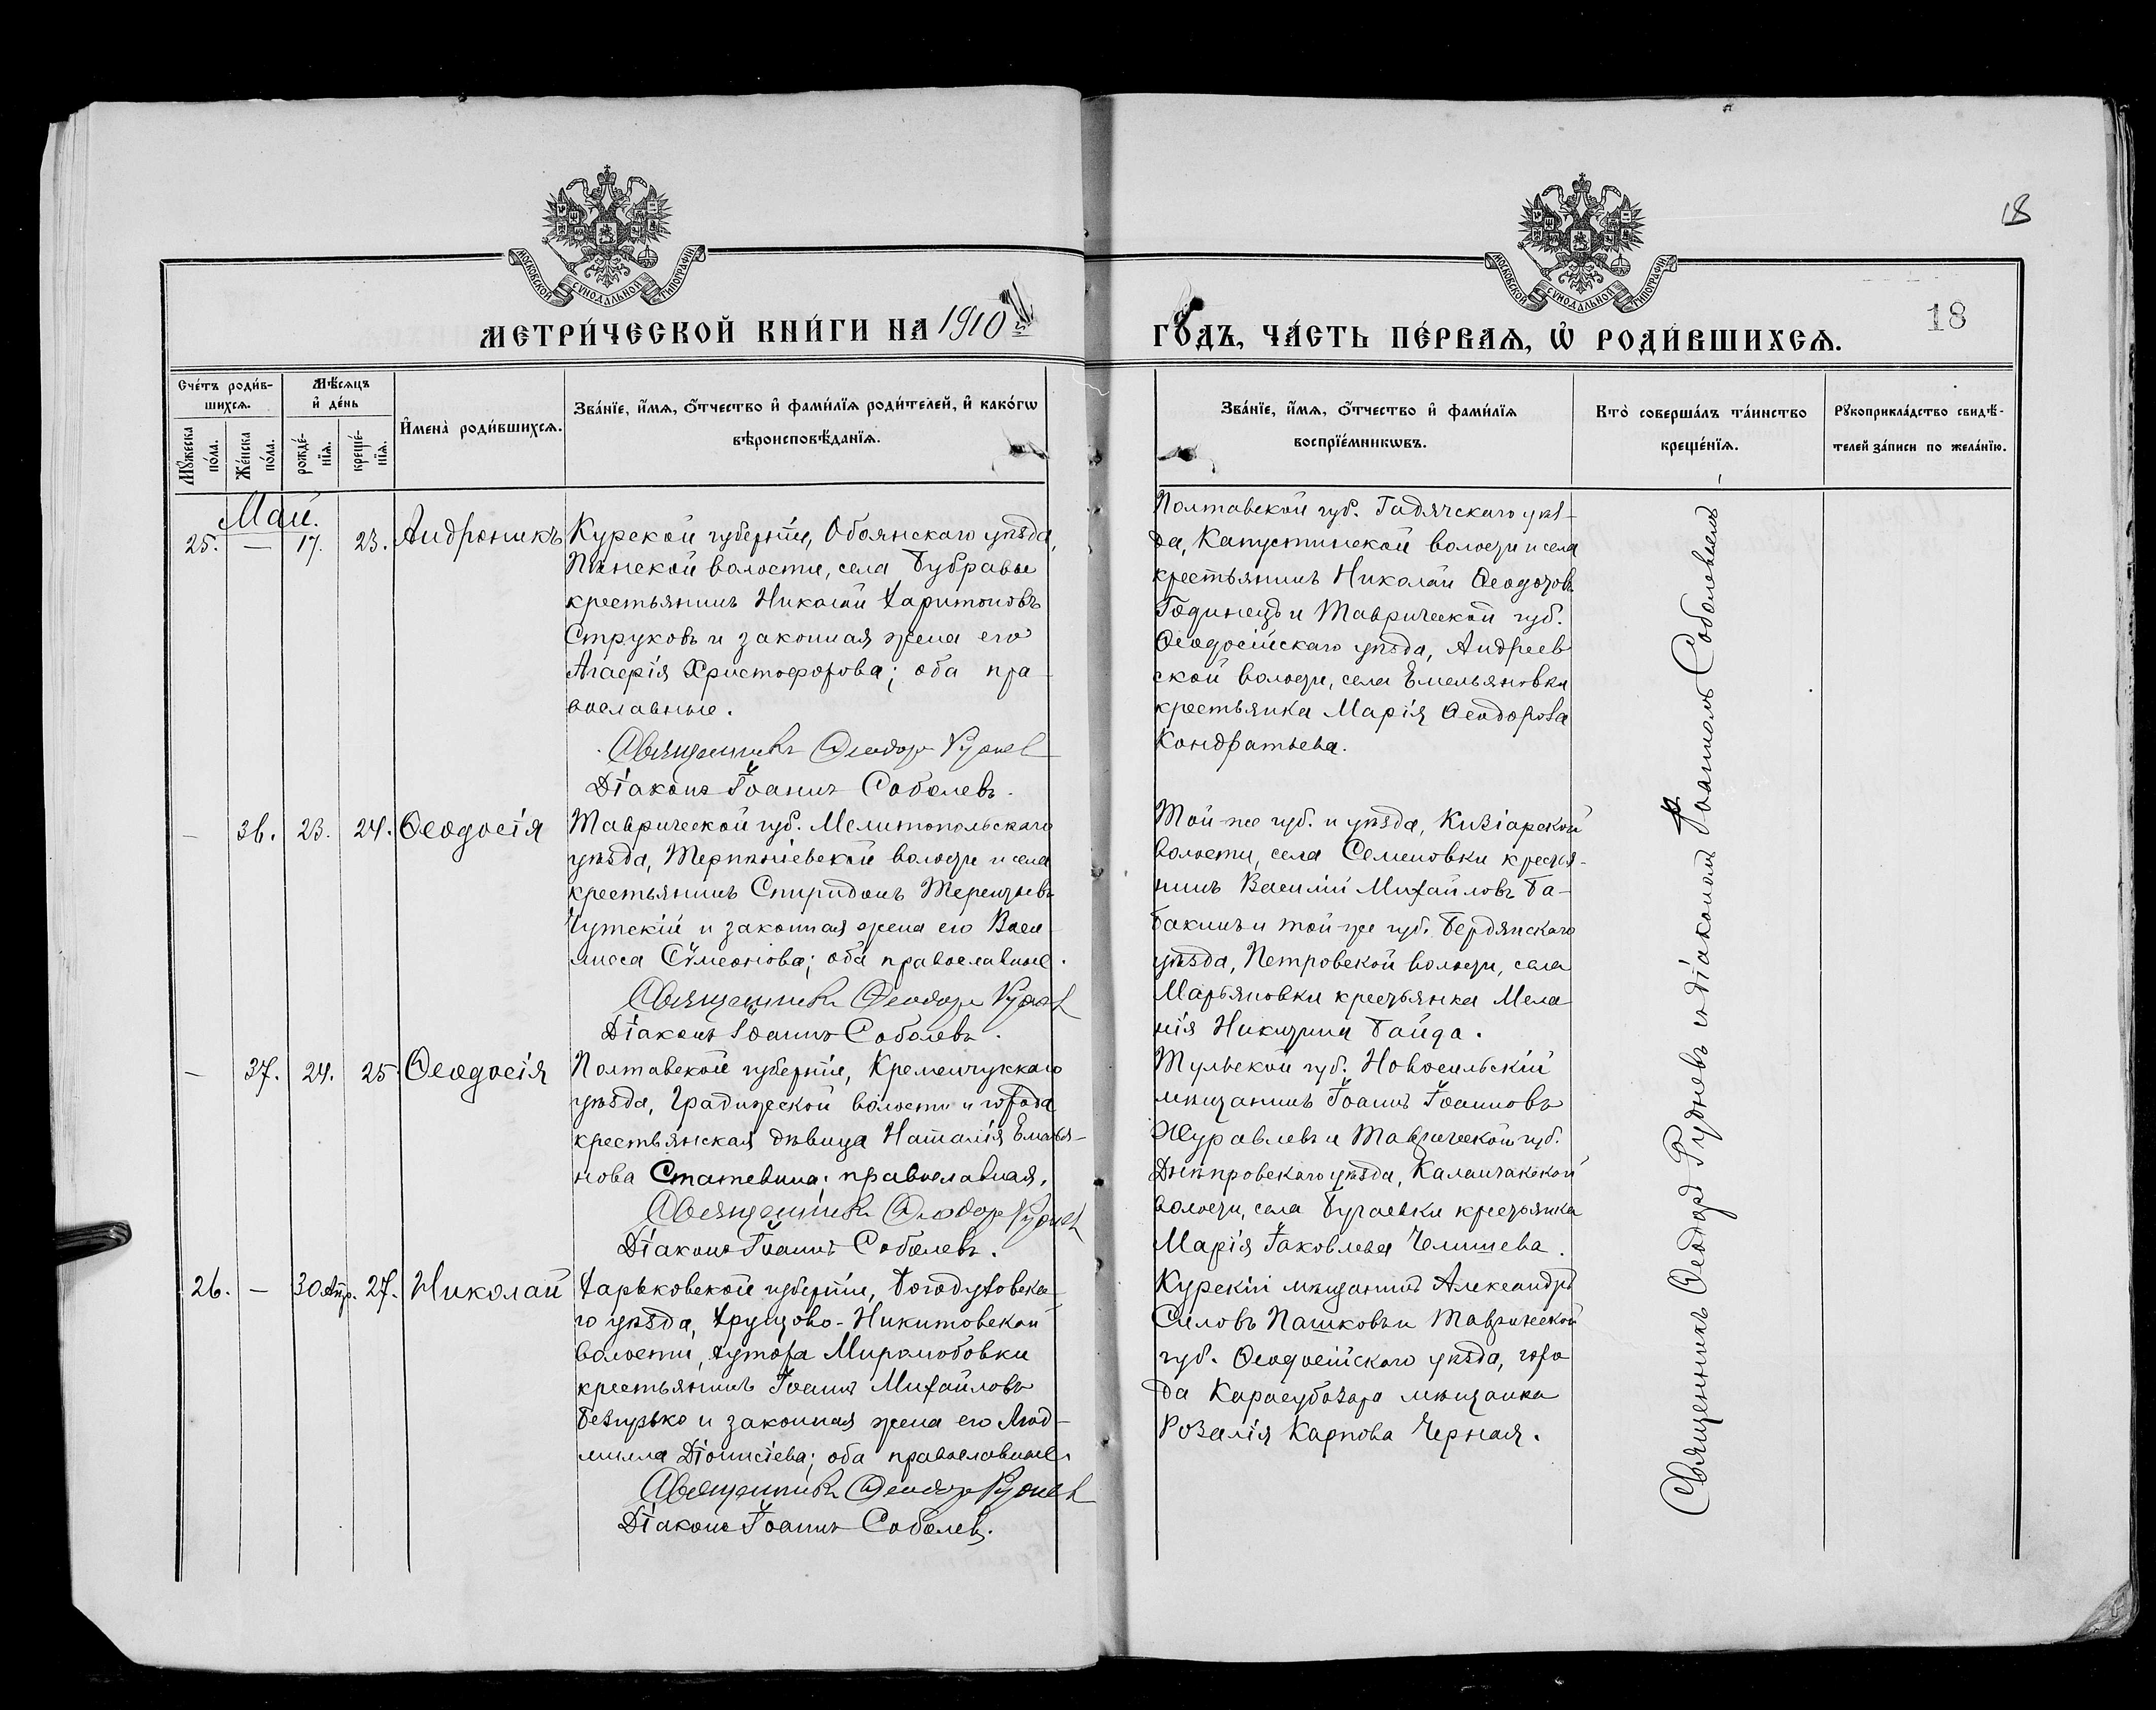 18
МОСКОВСКОЙ СѴНОДАЛЬНОЙ ТИПОГРАФІИ
МОСКОВСКОЙ СѴНОДАЛЬНОЙ ТИПОГРАФІИ
18
МЕТРИ́ЧЕСКОЙ КНИ́ГИ НА 1910й
ГО́ДЪ, ЧА́СТЬ ПЕ́РВАѦ, Ѡ҆ РОДИ́ВШИХСѦ.
Сче́тъ роди́в-
шихсѧ.
Мꙋжеска по́ла.
Же́нска по́ла.
Мѣ́сѧцъ
и҆ де́нь
рожде́-
нїѧ.
креще́-
нїѧ.
И҆мена̀ роди́вшихсѧ.
Зва́нїе, и҆́мѧ, ѻ҆́тчество и҆ фами́лїѧ роди́телей, и҆ како́гѡ
вѣроисповѣ́данїѧ.
Зва́нїе, и҆́мѧ, ѻ҆́тчество и҆ фами́лїѧ
воспрїе́мникѡвъ.
Кто̀ соверша́лъ та́инство
креще́нїѧ.
Рꙋкоприкла́дство свидѣ́-
телей за́писи по жела́нїю.
Май.
25. — 17. 23. Андроникъ
Курской губерніи, Обоянскаго уѣзда,
волости, села Бубравы
крестьянинъ Николай Харитоновъ
Струковъ и законная жена его
Агафія Христофорова; оба пра-
вославные.
Священникъ Ѳеодоръ Руднев
Діаконъ Іоаннъ Соболевъ.
Полтавской губ. Гадячскаго уѣз-
да, Капустинской волости и села
крестьянинъ Николай Ѳеодоровъ
Годинецъ и Таврической губ.
Ѳеодосійскаго уѣзда, Андреев
ской волости, села Емельяновки
крестьянка Марія Ѳеодорова
Кондратьева.
— 36. 23. 24. Ѳеодосія
Таврической губ. Мелитопольскаго
уѣзда, Терпѣніевской волости и села
крестьянинъ Спиридонъ Терентьевъ
Чутскій и законная жена его Васи-
лисса Сѵмеонова; оба православные.
Священникъ Ѳеодоръ Руднев
Діаконъ Іоаннъ Соболевъ.
Той-же губ. и уѣзда, Кизіарской
волости, села Семеновки крестья-
нинъ Василій Михайловъ Ба-
бакинъ и той же губ. Бердянскаго
уѣзда, Петровской волости, села
Марьяновки крестьянка Мела
нія Никитина Байда.
— 37. 24. 25 Ѳеодосія
Полтавской губерніи, Кременчугскаго
уѣзда, Градижской волости и города
крестьянская дѣвица Наталія Емелья-
нова Статевина; православная.
Священникъ Ѳеодоръ Руднев
Діаконъ Іоаннъ Соболевъ.
Тульской губ. Новосильскій
мѣщанинъ Іоаннъ Іоанновъ
Журавлевъ и Таврической губ.
Днѣпровскаго уѣзда, Каланчакской
волости, села Бугаевки крестьянка
Марія Іаковлева Челышева.
26. — 30 Апр. 27. Николай
Харьковской губерніи, Богодуховска-
го уѣзда, Хрущово-Никитовской
волости, хутора Миролюбовки
крестьянинъ Іоаннъ Михайловъ
Безгузько и законная жена его Люд-
милла Діонисіева; оба православные.
Священникъ Ѳеодоръ Руднев
Діаконъ Іоаннъ Соболевъ.
Курскій мѣщанинъ Александръ
Силовъ Пашковъ и Таврической
губ. Ѳеодосійскаго уѣзда, горо
да Карасубазара мѣщанка
Розалія Карпова Черная.
Священникъ Ѳеодоръ Рудневъ и діакономъ Іоанномъ Соболевымъ